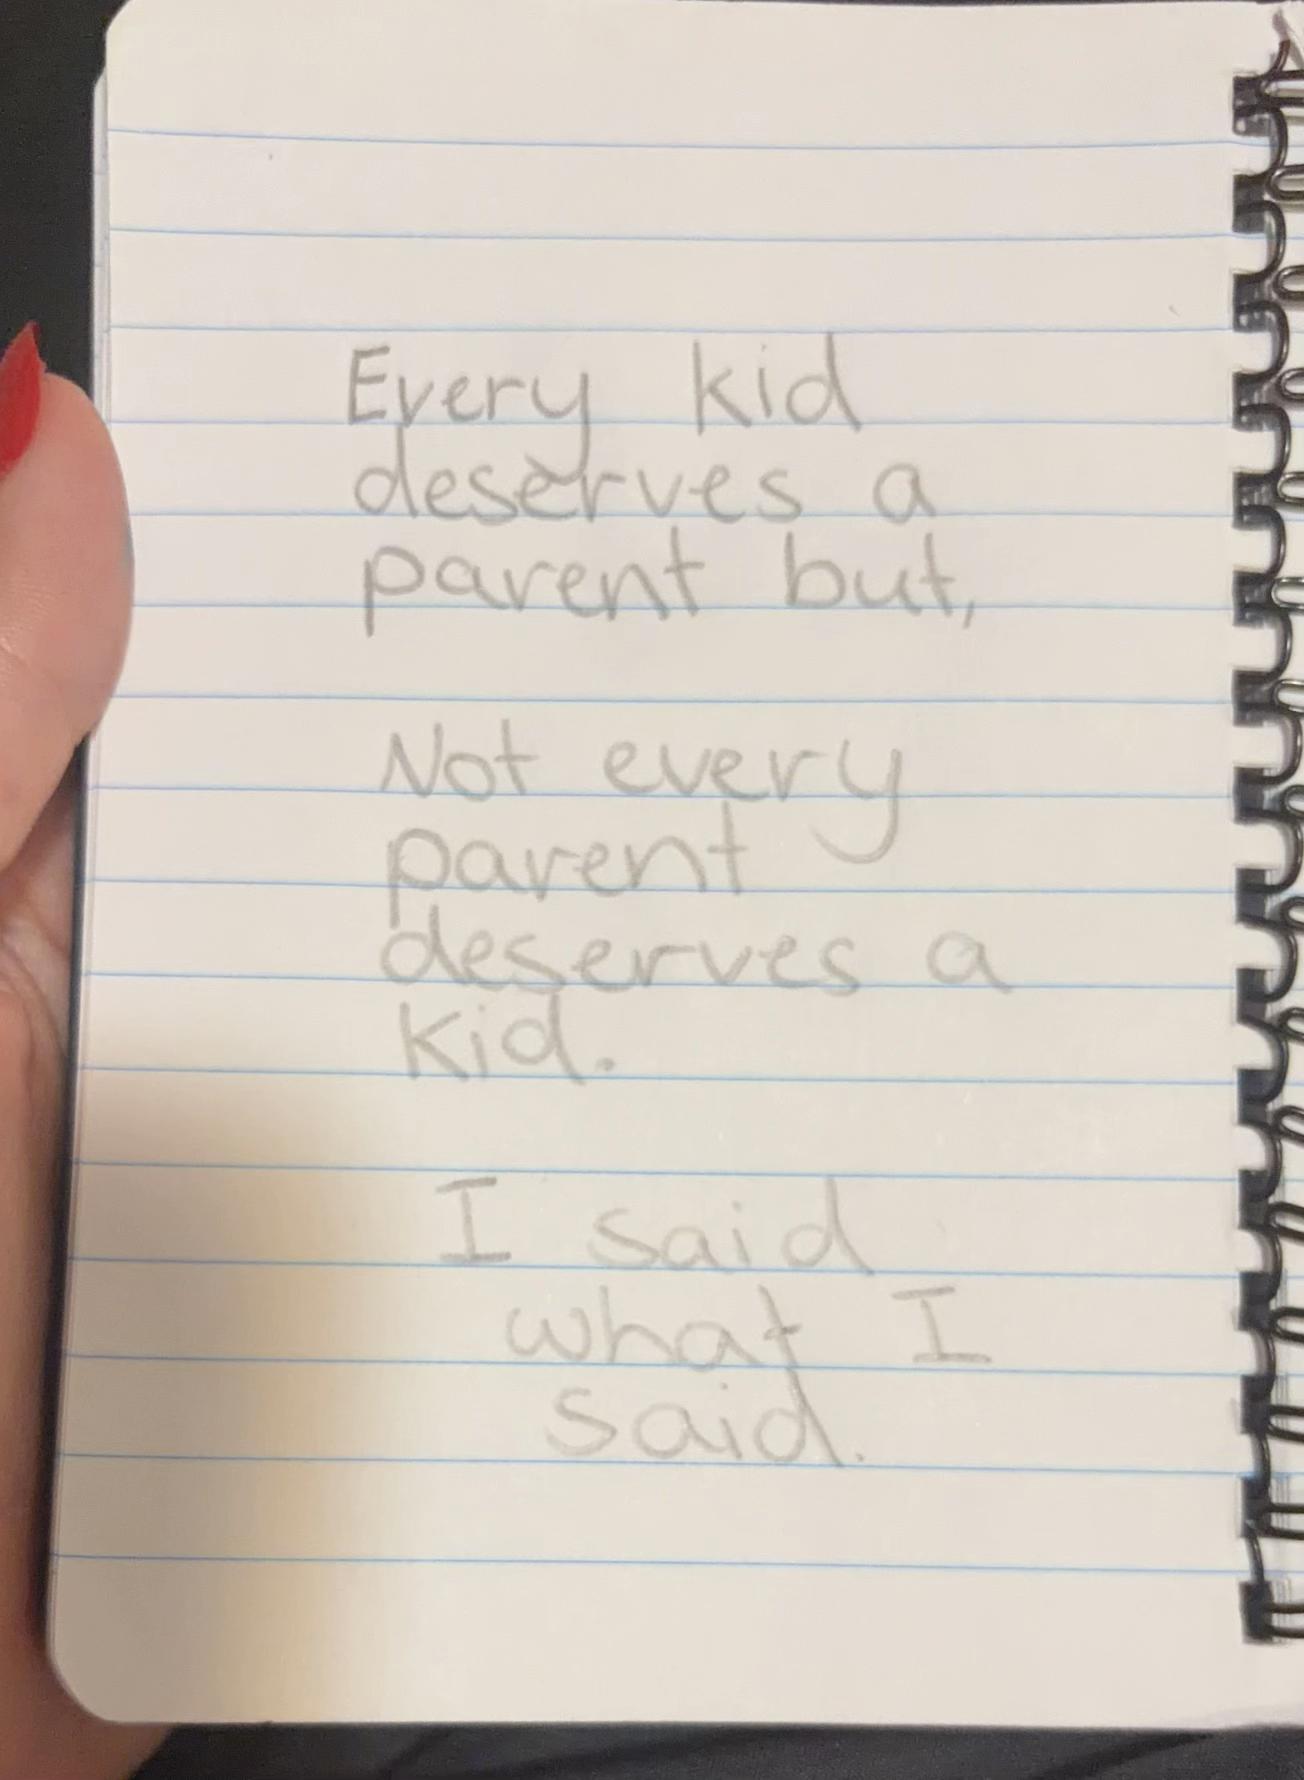 Every kid
deserves a
parent but,
Not every
parent
deserves a
kid.
I said
what I
said.